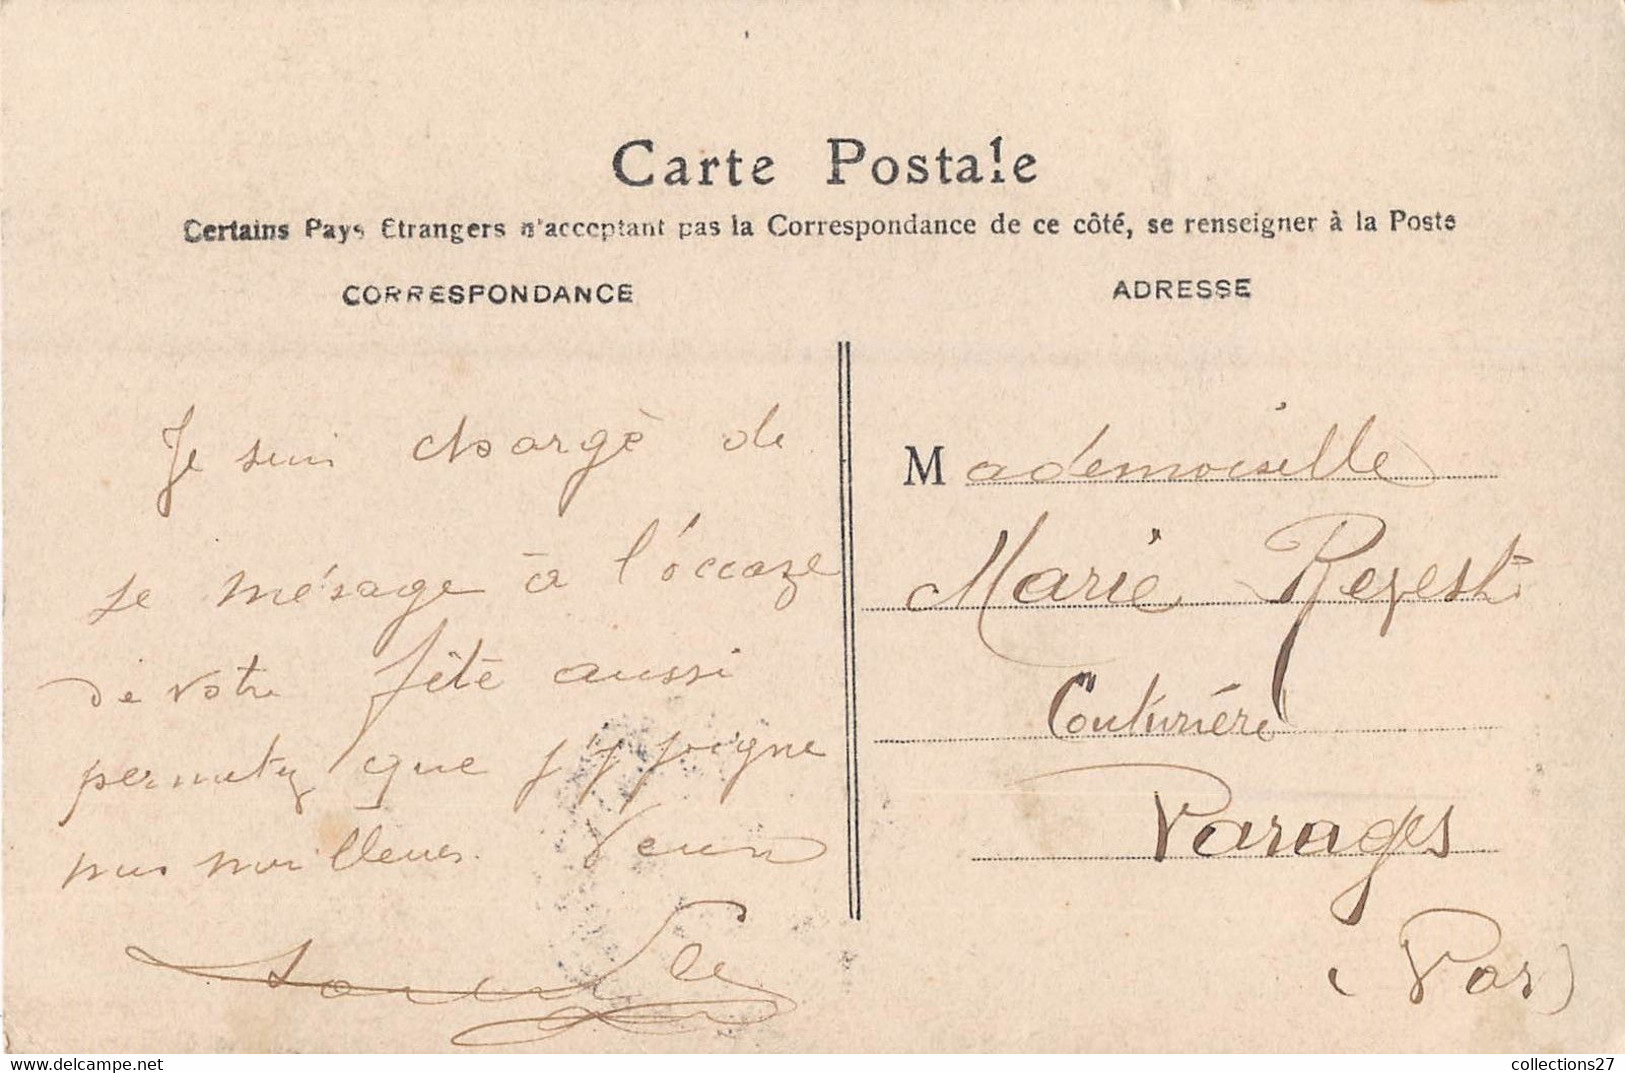 Carte Postale
Certains Pays Etrangers n'acceptant pas la Correspondance de ce côté, se renseigner à la Poste
CORRESPONDANCE
ADRESSE
Je suis chargè de
se mésage à l'óccaze
de votre fête aussi
permetez que j'y joigne
mes meilleurs. Veux
Mademoiselle
Marie Revest
Couturiére
Varages
(Var)
https://www.delcampe.net
collections27